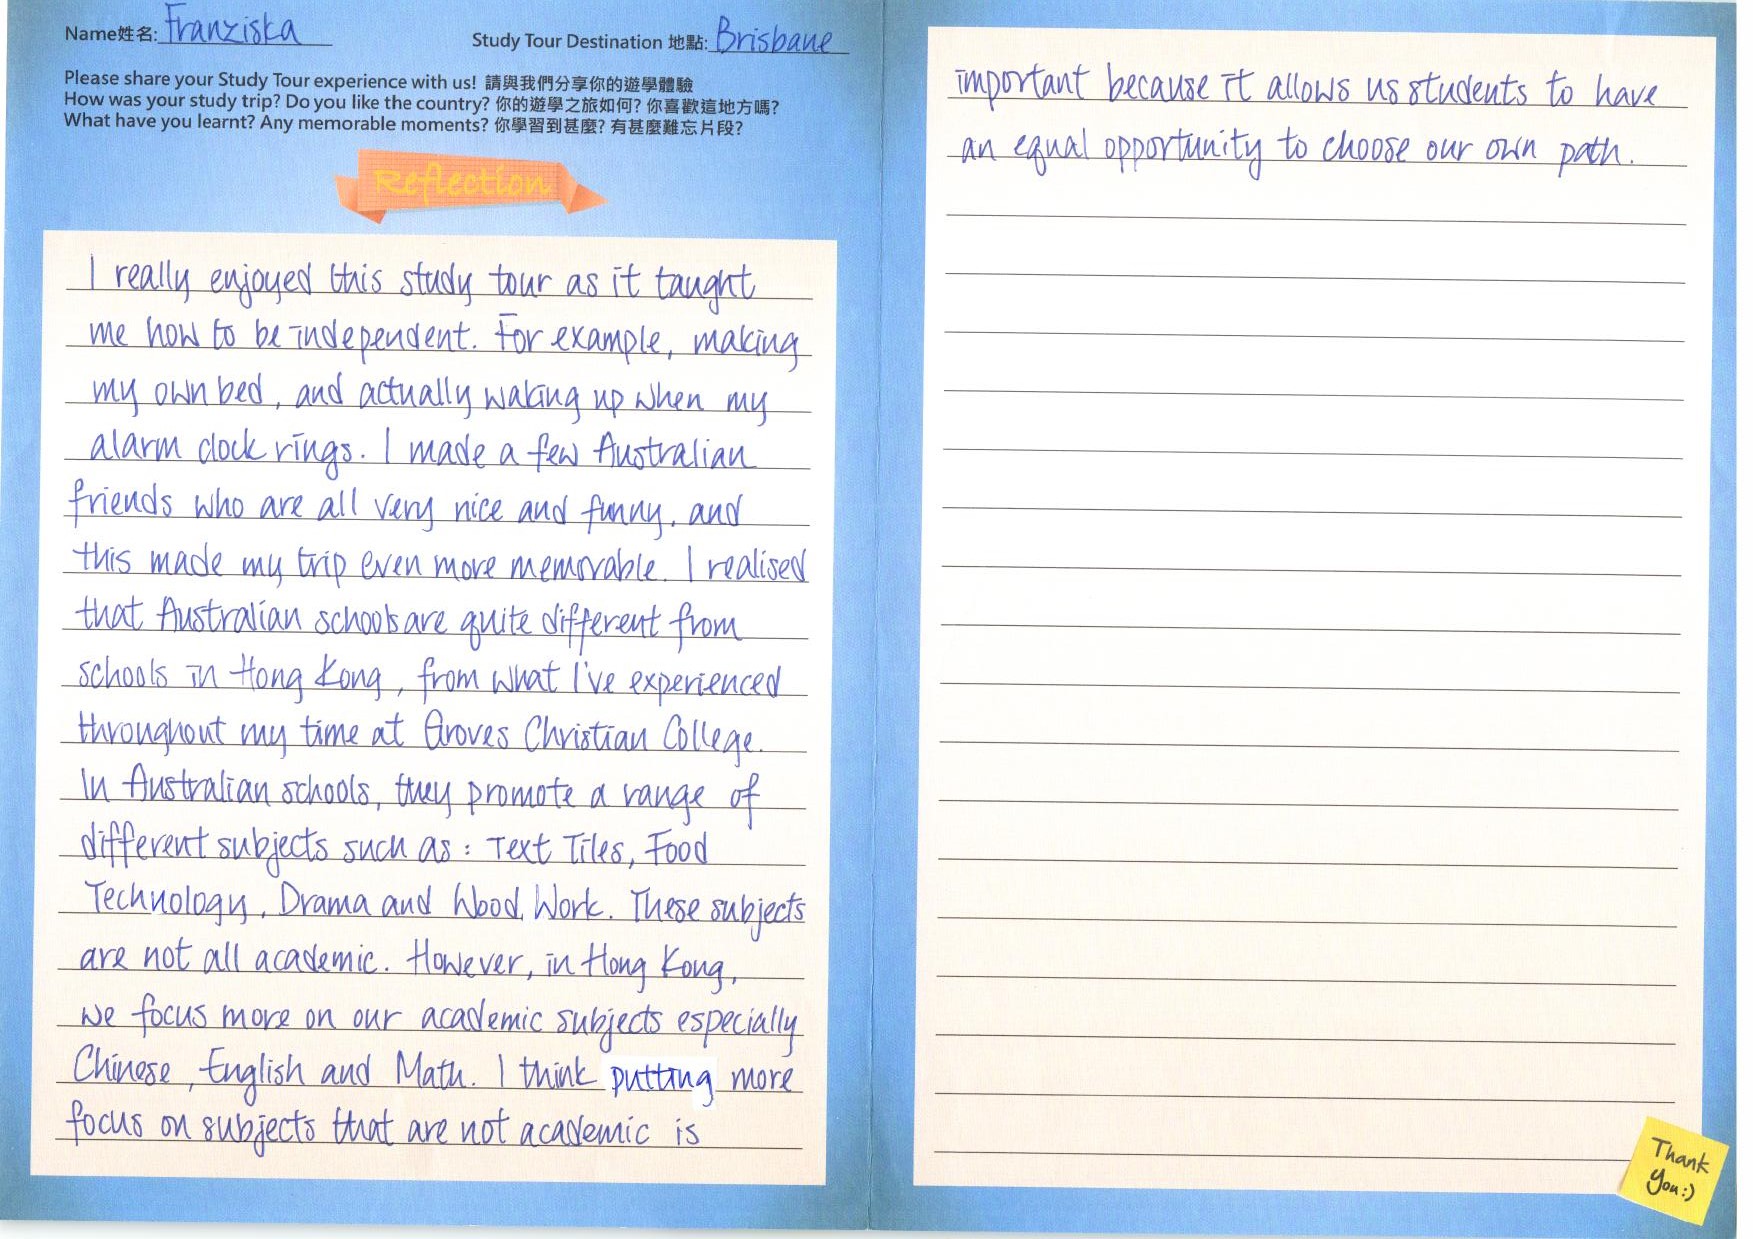 Name姓名: Franziska
Study Tour Destination 地點: Brisbane
Please share your Study Tour experience with us! 請與我們分享你的遊學體驗
How was your study trip? Do you like the country? 你的遊學之旅如何? 你喜歡這地方嗎?
What have you learnt? Any memorable moments? 你學習到甚麼? 有甚麼難忘片段?
Reflection
I really enjoyed this study tour as it taught
me how to be independent. For example, making
my own bed, and actually waking up when my
alarm clock rings. I made a few Australian
friends who are all very nice and funny, and
this made my trip even more memorable. I realised
that Australian schools are quite different from
schools in Hong Kong, from what I've experienced
throughout my time at Groves Christian College.
In Australian schools, they promote a range of
different subjects such as: Text Tiles, Food
Technology, Drama and Wood Work. These subjects
are not all academic. However, in Hong Kong,
we focus more on our academic subjects especially
Chinese, English and Math. I think putting more
focus on subjects that are not academic is
important because it allows us students to have
an equal opportunity to choose our own path.
Thank
You:)